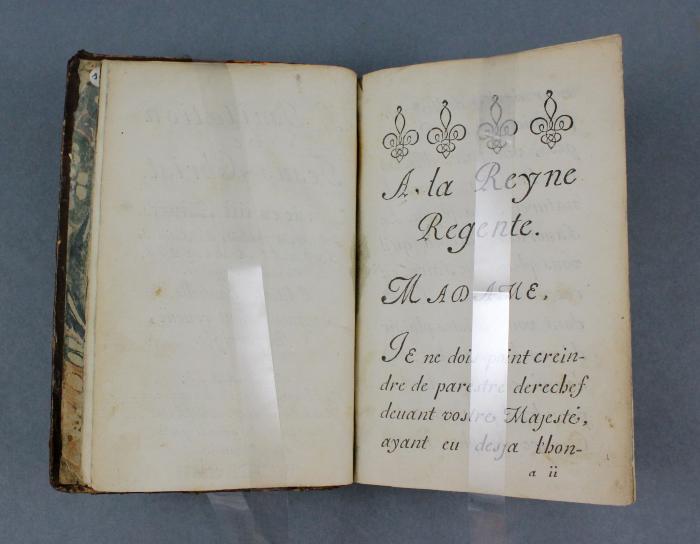 A. la Reyne
Regente.
MADAME,
JE ne dois point crein-
dre de parestre derechef
deuant vostre Majesté,
ayant eu desja l'hon-
a ii